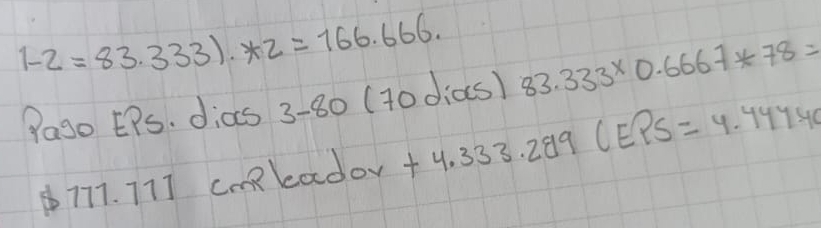 1-2 = 83.333). *2 = 166.666.
Pago EPS. dias 3-80 (70 dias) 83.333 x 0.6667 * 78 =
$111.111 empleador + 4.333.289 (EPS = 4.44440